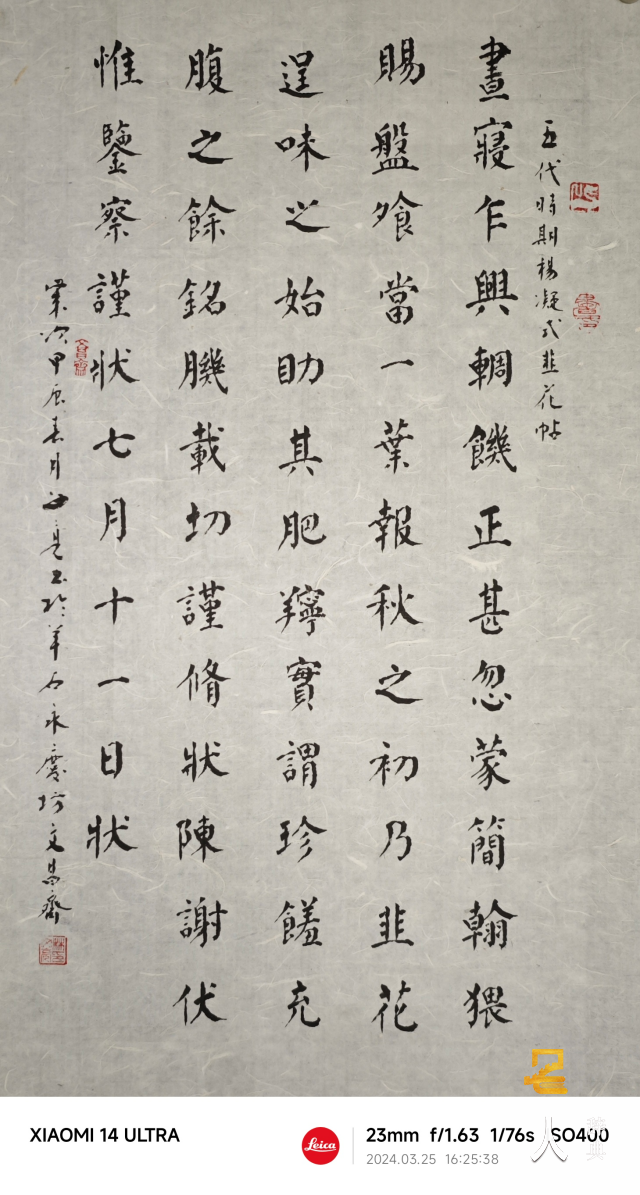 五代時期楊凝式韭花帖
晝寢乍興輖饑正甚忽蒙簡翰猥
賜盤飧當一葉報秋之初乃韭花
逞味之始助其肥羜實謂珍饈充
腹之餘銘肌載切謹脩狀陳謝伏
惟鑒察謹狀七月十一日狀
歲次甲辰春月書於羊石永慶坊文昌齋
XIAOMI 14 ULTRA
Leica
23mm f/1.63 1/76s ISO400
2024.03.25 16:25:38